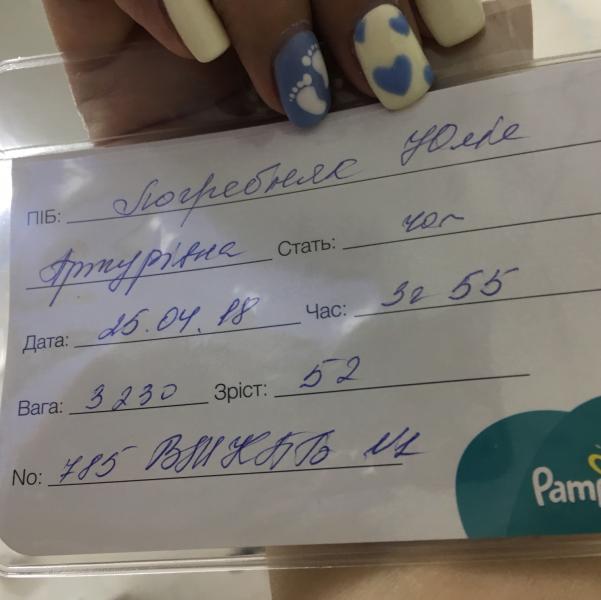 ПІБ: Погребняк Юлія
Артурівна Стать: чол
Дата: 25.04.18 Час: 3г 55
Вага: 3230 Зріст: 52
No: 785 №1
Pamp